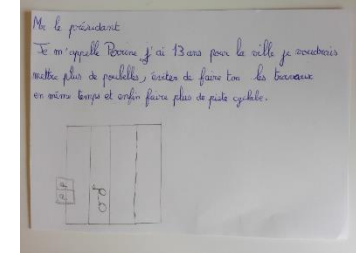 Mr le présidant
Je m'appelle Perrine j'ai 13 ans pour la ville je voudrais
mettre plus de poubelles, éviter de faire tou les travaux
en même temps et enfin faire plus de piste cyclable.